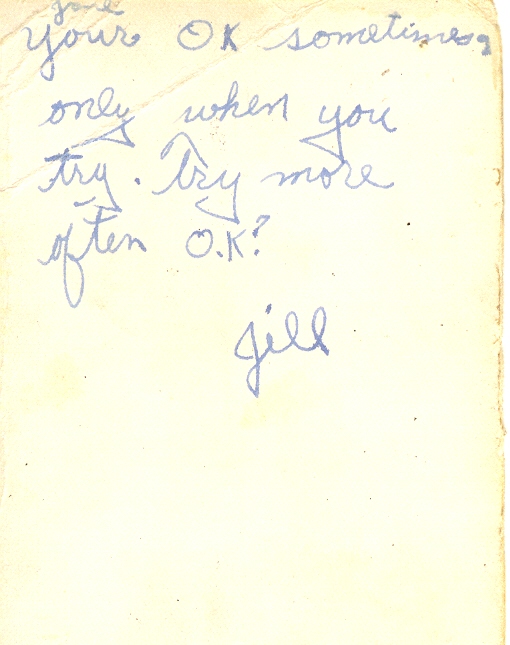 Your OK sometimes
only when you
try. Try more
often O.K?
Jill